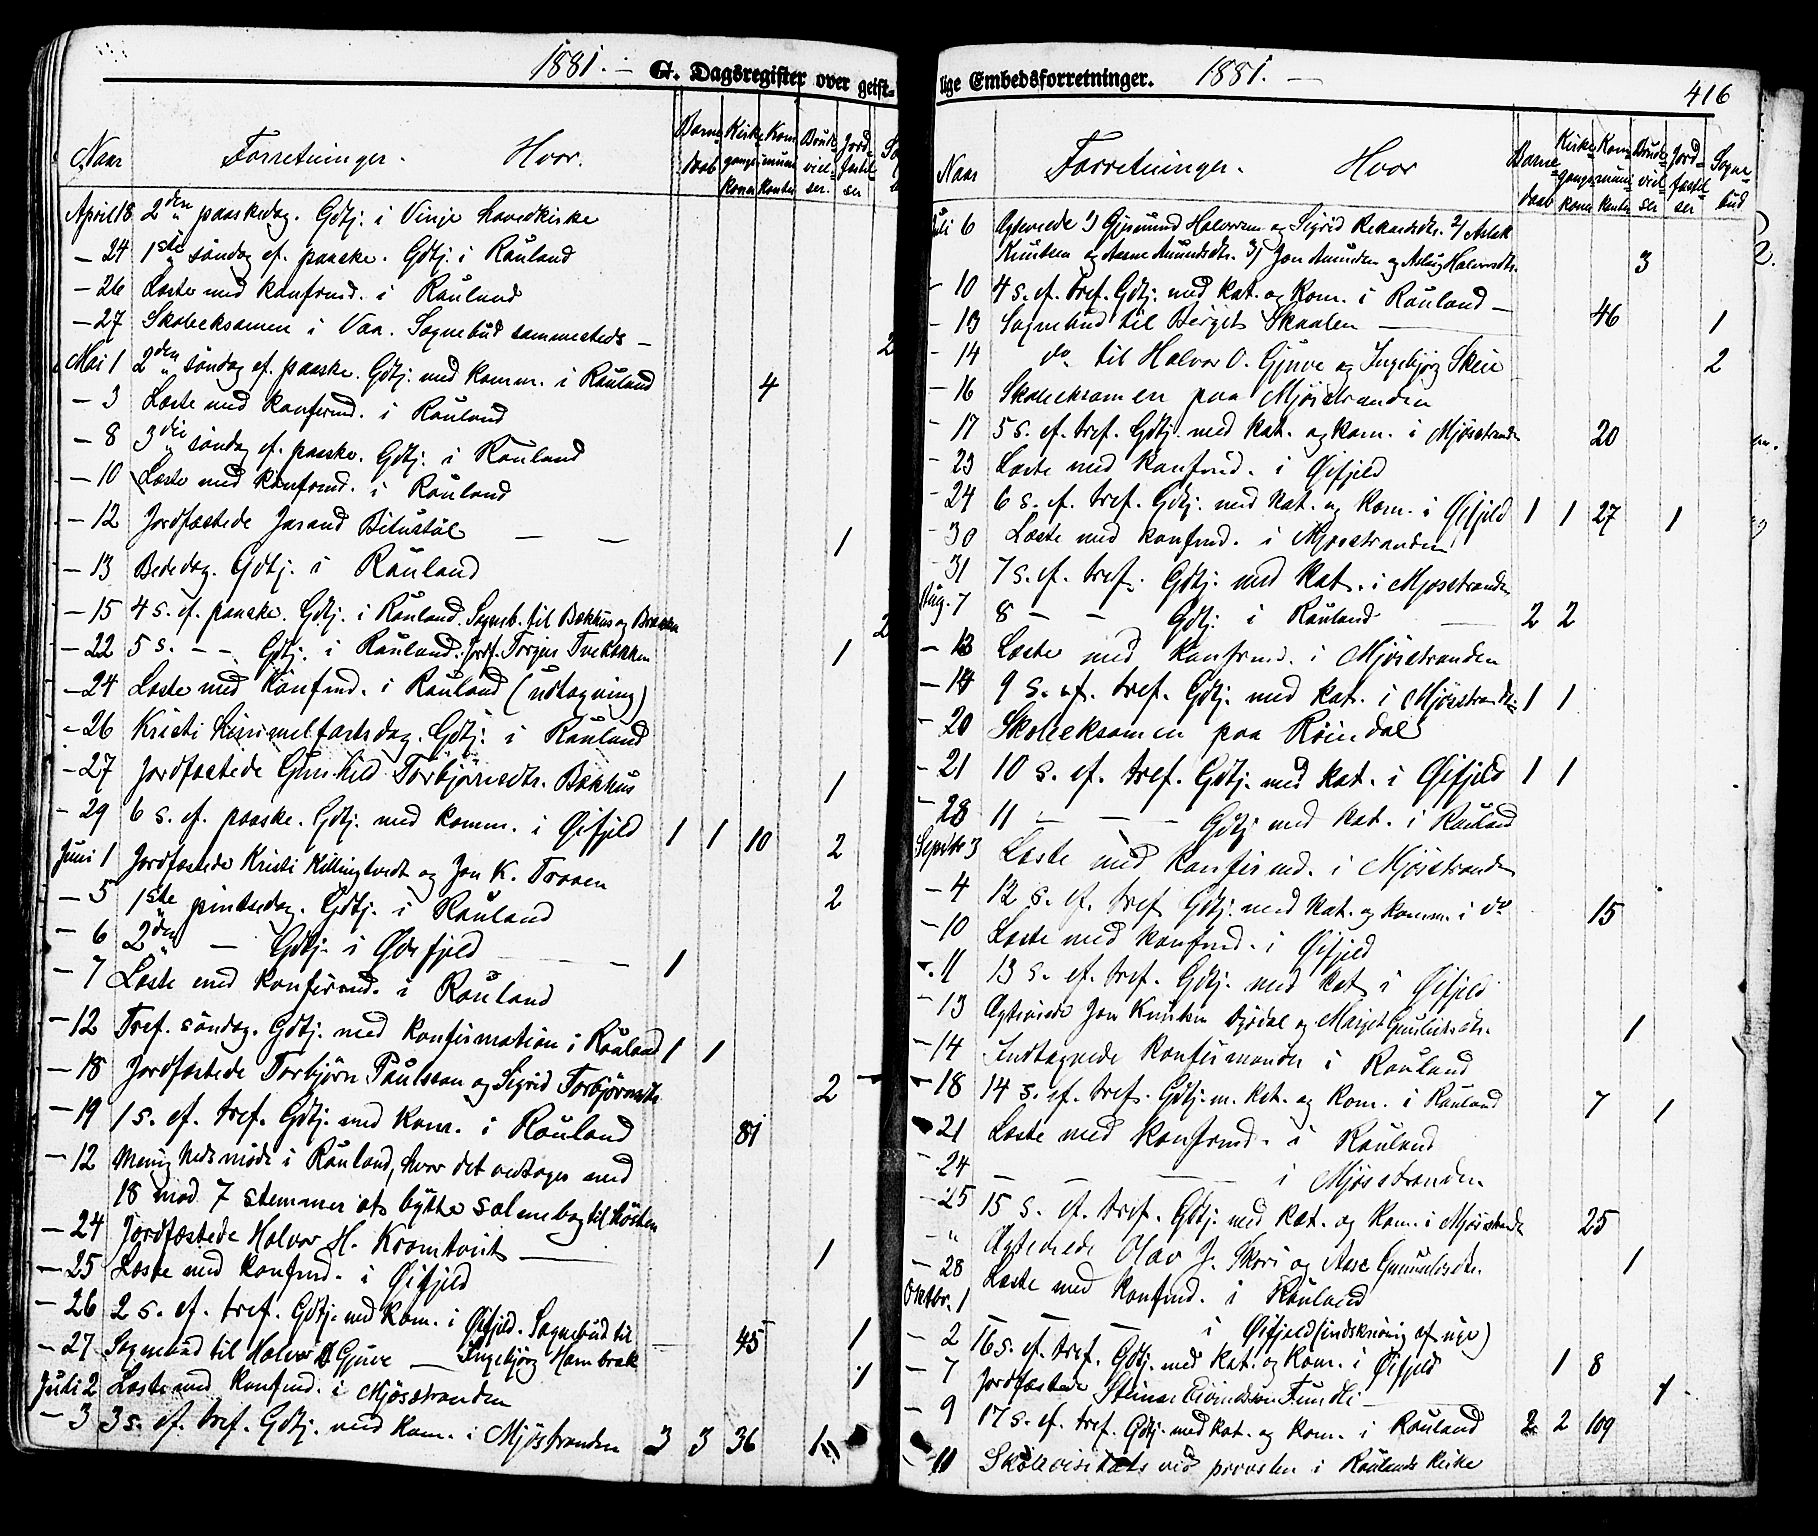 1881. —
G. Dagsregister over geist-
Naar Forretninger. Hvor. Barne daab Kirke gangs kone Kom muni kanter Brude viel ser. Jord fæstel ser
April 18 2den paaskedag. Gdtj. i Vinje Hovedkirke
— 24 1ste søndag ef. paaske. Gdtj. i Rauland
— 26 Læste med konfirmd. i Rauland
— 27 Skoleeksamen i Vaa. Sognebud sammesteds — 2
Mai 1 2den søndag ef. paaske. Gdtj. med komm. i Rauland 4
— 3 Læste med konfirmd. i Rauland
— 8 3die søndag ef. paaske. Gdtj. i Rauland
— 10 Læste med konfirmd. i Rauland
— 12 Jordfæstede Jarand Bitustøl — — 1
— 13 Bededag. Gdtj. i Rauland
— 15 4 s. ef. paaske. Gdtj. i Rauland. Sogneb. til Bækhus og 2
— 22 5 s. — — Gdtj. i Rauland. Jordf. Torgus 1
— 24 Læste med Konfmd. i Rauland (udtagning)
— 26 Kristi Himmelfartsdag. Gdtj. i Rauland
— 27 Jordfæstede Gunhild Torbjørnsdtr. Bækhus 1
— 29 6 s. ef. paaske. Gdtj. med komm. i Øifjeld 1 1 10 2
Juni 1 Jordfæstede Kristi Killingtvedt og Jon K. Troaen
— 5 1ste pintsedag. Gdtj. i Rauland 2
— 6 2den — Gdtj. i Øifjeld — — 1
— 7 Læste med konfirmd. i Rauland
— 12 Tref. søndag. Gdtj. med konfirmation i Rauland 1 1
— 18 Jordfæstede Torbjørn Paulsson og Sigrid Torbjørnsdtr 2
— 19 1 s. ef. tref. Gdtj. med kom. i Rauland 81
— 12 Menighedsmøde i Rauland, hvor det vedtoges med
18 mod 7 stemmer at bytte salmebog til Høsten
— 24 Jordfæstede Halvor H. Kromtveit — 1
— 25 Læste med konfmd. i Øifjeld
— 26 2 s. ef. tref. Gdtj. med kom. i Øifjeld. Sognebud til 45 1
— 27 Sognebud til Halvor O Gjuve — Ingebjørg Hambrek 1
Juli 2 Læste med konfmd. i Mjösstranden
— 3 3 s. ef. tref. Gdtj. med kom. i Mjösstranden 3 3 36 1
lige Embedsforretninger. 1881. —
416
Naar Forretninger. Hvor Barne daab Kirke gangs kone Kom muni kanter Brude viel ser Jord fæstel ser Sogne bud
Juli 6 Ægteviede 1) Gjermund Halvorsen og Sigrid Rekardsdtr. 2) Aslak
Knutsen og Aasne Amundsdtr. 3) Jon Amunden og Aslaug Halvorsdtr. 3
— 10 4 s. ef. tref. Gdtj. med kat. og kom. i Rauland — 46
— 13 Sognebud til Bergit Skaalen — 1
— 14 do. til Halvor O. Gjuve og Ingebjørg Skeie 2
— 16 Skoleeksamen paa Mjösstranden
— 17 5 s. ef. tref. Gdtj. med kat. og kom. i Mjösstranden 20
— 23 Læste med konfmd. i Øifjeld
— 24 6 s. ef. tref. Gdtj. med kat. og kom. i Øifjeld 1 1 27 1
— 30 Læste med konfmd. i Mjösstranden
— 31 7 s. ef. tref. Gdtj. med kat. i Mjösstranden
Aug. 7 8 — — Gdtj. i Rauland — 2 2
— 13 Læste med konfirmd. i Mjösstranden
— 14 9 s. ef. tref. Gdtj. med kat. i Mjösstranden 1 1
— 20 Skoleeksamen paa Röindal
— 21 10 s. ef. tref. Gdtj. med kat. i Øifjeld 1 1
— 28 11 — — — Gdtj med kat. i Rauland
Septbr 3 Læste med konfirmd. i Mjösstranden
— 4 12 s. ef. tref Gdtj. med kat. og komm. i do 15
— 10 Læste med konfmd. i Øifjeld
— 11 13 s. ef. tref. Gdtj. med kat i Øifjeld
— 13 Ægteviede Jon Knutsen og Margit Gunleiksdtr. 1
— 14 Indtagnede konfirmander i Rauland
— 18 14 s. ef. tref. Gdtj. m. kat. og kom. i Rauland 7 1
— 21 Læste med konfirmd. i Rauland
— 24 — — — i Mjösstranden
— 25 15 s. ef. tref. Gdtj. med kat. og kom. i Mjösstrande 25
— " Ægteviede Olav J. Skori og Aase Gunnulvsdtr. 1
— 28 Læste med konfmd. i Rauland
Oktbr. 1 — — — i Øifjeld (indskrivning af nye)
— 2 16 s. ef. tref. Gdtj. med kat. og kom. i Øifjeld 1 8
— 7 Jordfæstede Steinar Eivindsson Fundli — 1
— 9 17 s. ef. tref. Gdtj. med kat. og kom. i Rauland 2 2 109
— 11 Skolevisitats ved provsten i Raulands kirke